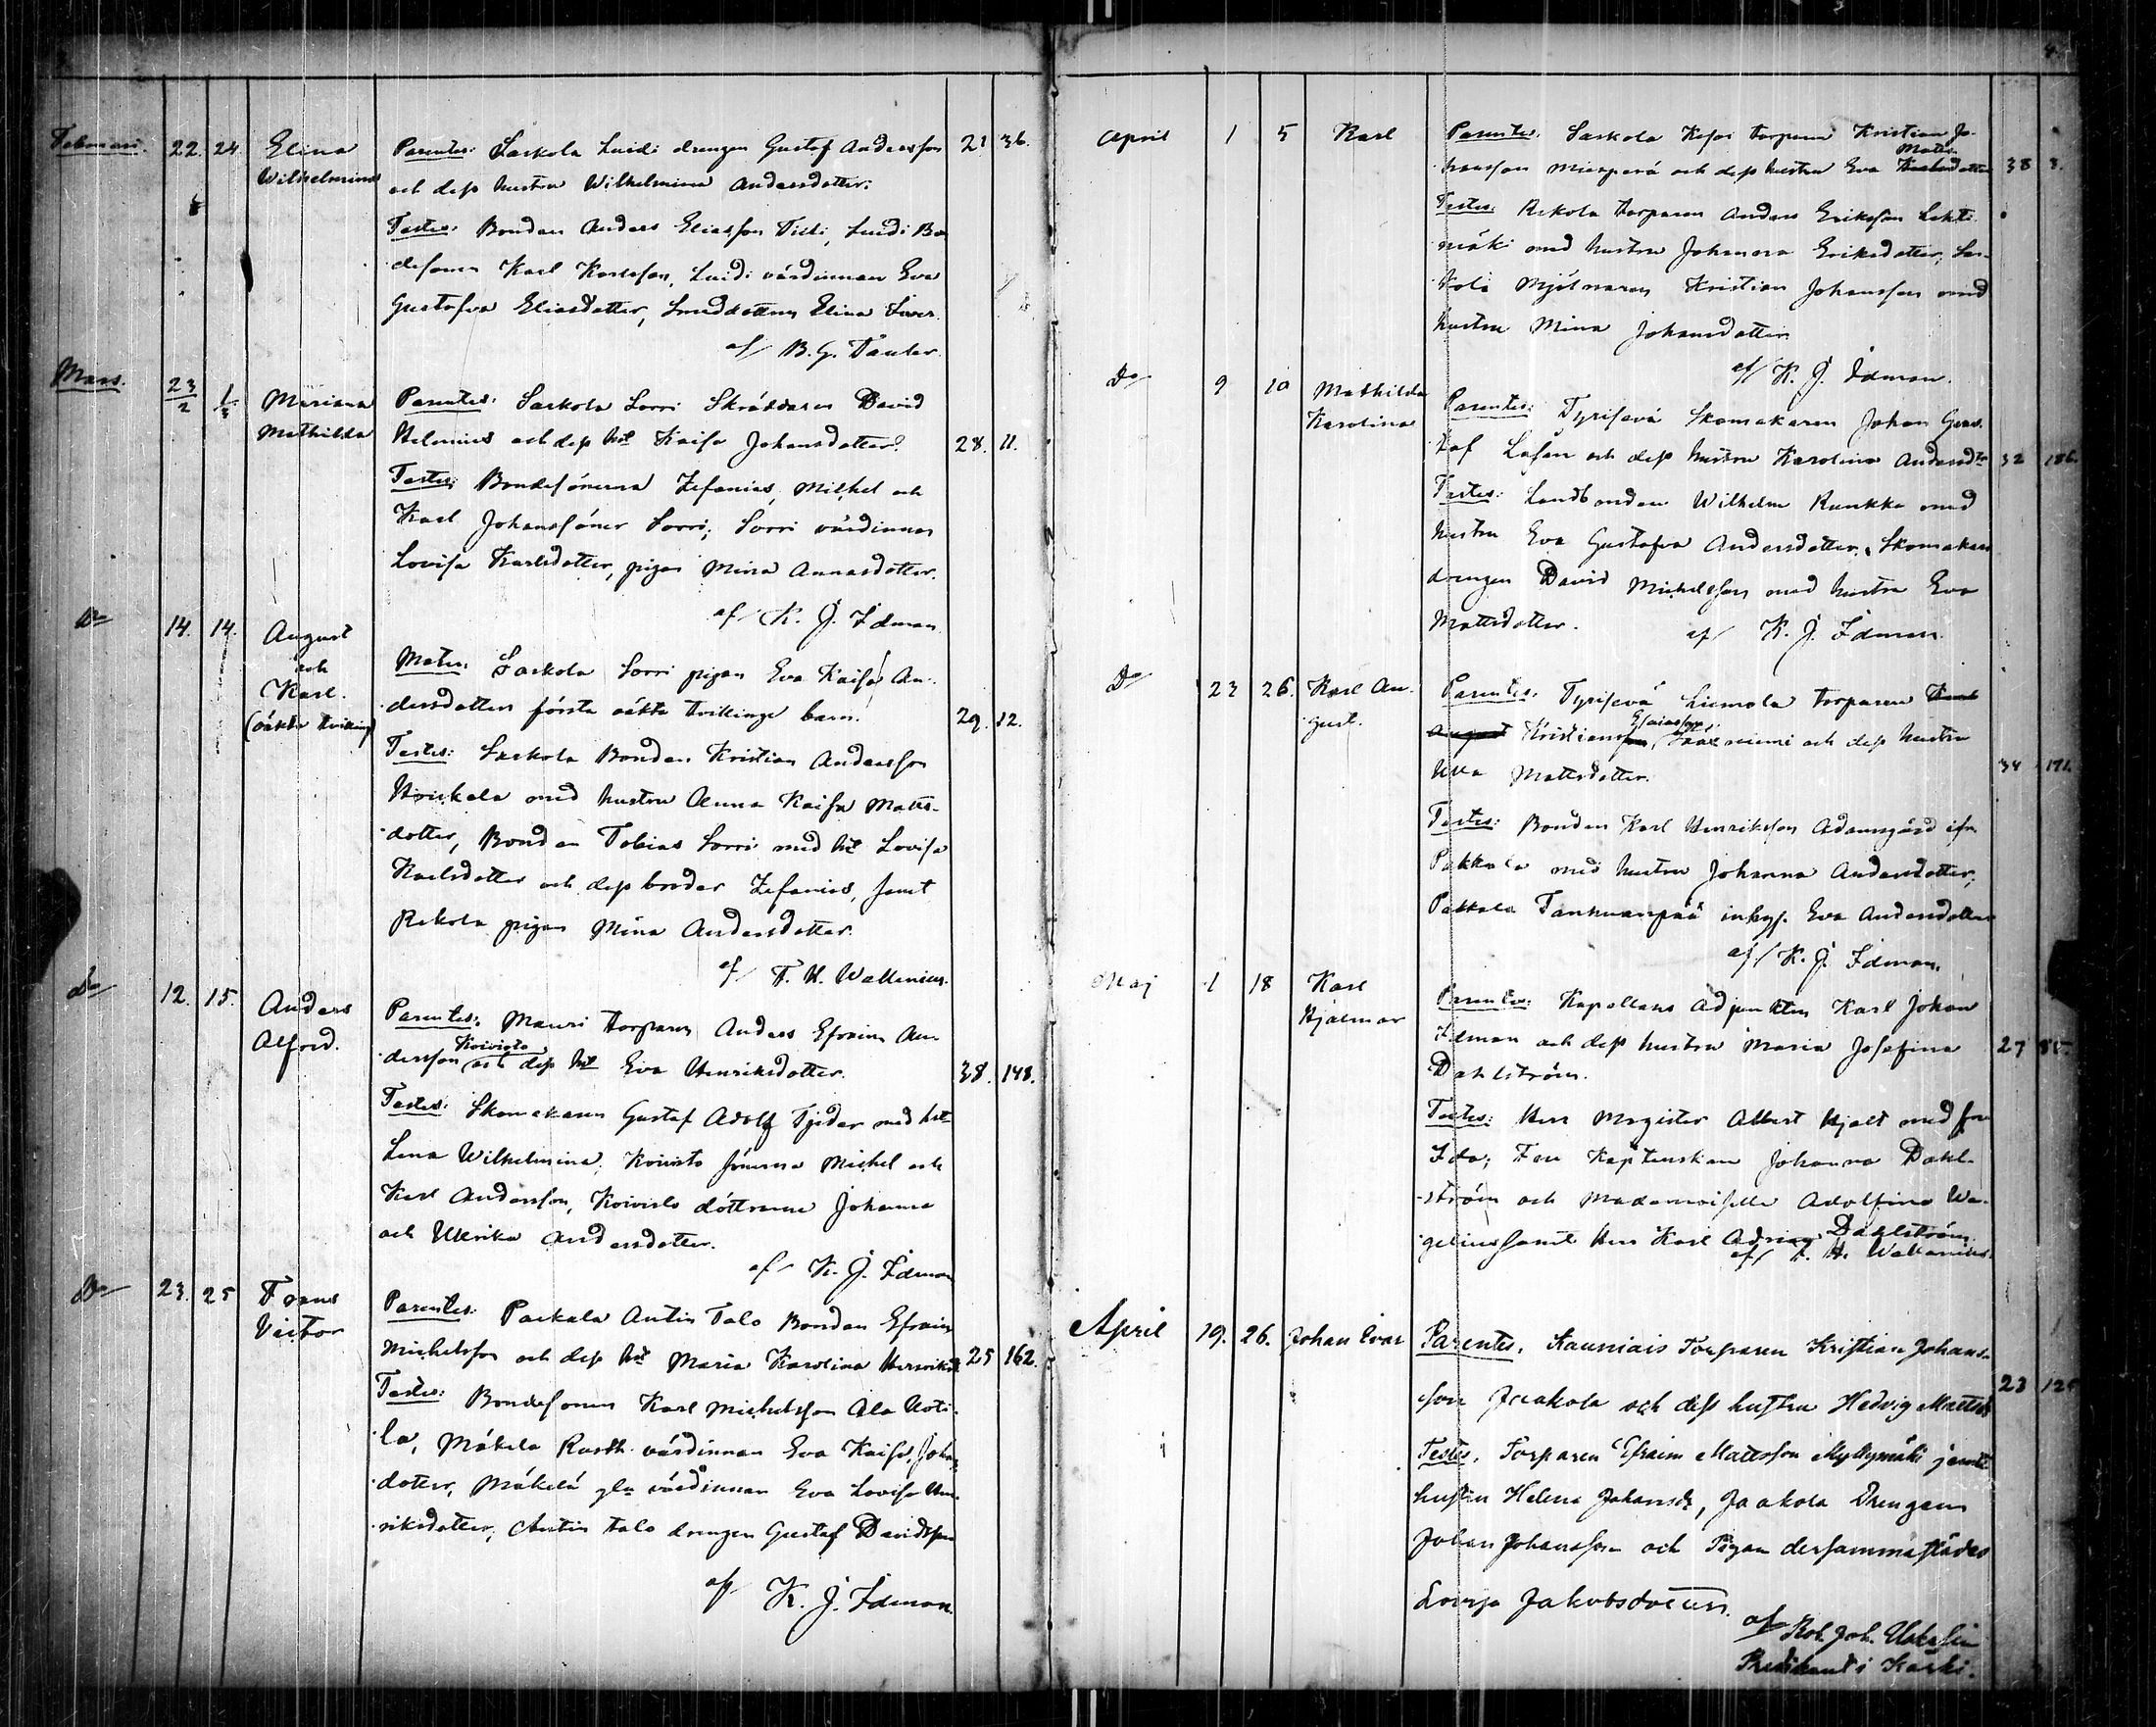 Februari. 22. 24. Elina Wilhelmina
Parentes: Saskola Luidi drengen Gustaf Andersson 21 36.
och dess hustru Wilhelmina Andersdotter.
Testes: Bonden Anders Eliasson Tilli, Luidi Bon
desonen Karl Karlsson, Luidi värdinnan Eva
Gustafva Eliasdotter, Elina
af B. G. Tauler
Mars. 23/2 1/3 Mariana Mathilda
Parentes: Saskola Sorri Skräddaren David
Helenius och dess hu Kaisa Johansdotter 28. 11.
Testes: Bondesönerna Zefanias, Michel och
Karl Johanssöner Sorri; Sorri värdinnan
Lovisa Karlsdotter, pigan Mina Annasdotter.
af K. J. Idman
Do 14. 14. August och Karl. (oäkta tvilling)
Mater: Saskola Sorri pigan Eva Kaisa An-
dersdotters första oäkta tvillinge barn. 29. 12.
Testes: Saskola Bonden Kristian Andersson
med hustru Anna Kaisa Matts-
dotter, Bonden Tobias Sorri med hu Lovisa
Karlsdotter och dess broder Zefanias, samt
Rekola pigan Mina Andersdotter.
af F. H. Wallenius.
Do 12. 15. Anders Alfred.
Parentes: Mauri torparen Anders Efraim An-
dersson Koivisto och dess hu Eva Henriksdotter. 38. 148.
Testes: Skomakaren Gustaf Adolf Tjeder med hu
Lena Wilhelmina, Koivisto sönerna Michel och
Karl Andersson, Koivisto döttrarne Johanna
och Ulrika Andersdotter.
af K. J. Idman
Do 23. 25 Frans Victor
Parentes: Pakkala Antin Talo Bonden Efraim
Michelsson och dess hu Maria Karolina Henriksd 25 162.
Testes: Bondesonen Karl Michelsson Ala Uoti-
la, Mäkelä Rusth. värdinnan Eva Kaisa Johans
dotter, Mäkelä gla värdinnan Eva Lovisa Hen-
riksdotter, Antin talo drengen Gustaf Davidsson
af K. J. Idman.
April 1 5 Karl
Parentes: Saskola torparen Kristian Jo-
hansson och dess hustru Eva Matts dotter 38 3.
Testes: Rekola torparen Anders Eriksson Lehti
mäki med hustru Johanna Eriksdotter, Sas-
kola Mjölnaren Kristian Johansson med
hustru Mina Johansdotter
af K. J. Idman.
Do 9 10 Mathilda Karolina
Parentes: Tyrisevä Skomakaren Johan Gus-
taf Lasén och dess hustru Karolina Andersdtr 32 186.
Testes: Landbonden Wilhelm Runkka med
hustru Eva Gustafva Andersdotter, Skomakare
drengen David Michelsson med hustru Eva
Mattsdotter.
af K. J. Idman.
Do 23 26. Karl August.
Parentes: Tyrisevä Liemola torparen Karl
August Kristiansson Esaiasson niemi och dess hustru
Ulla Mattsdotter. 34 171.
Testes: Bonden Karl Henriksson Adamsgård ifrn
Pakkala med hustru Johanna Andersdotter;
Pakkala Tanhuanpää inhys. Eva Andersdotter
af K. J. Idman.
Maj 1 18 Karl Hjalmar
Parentes: Kapellans Adjunkten Karl Johan
Idman och dess hustru Maria Josefina 27 85.
Dahlström.
Testes: Herr Magister Albert Hjelt med fru
Ida; Fru Kaptenskan Johanna Dahl-
ström och Mademoiselle Adolfina We-
gelius samt Herr Karl Adrian Dahlström.
af F. H. Wallenius.
April 19. 26. Johan Evar
Parentes, Kauniais Torparen Kristian Johans-
son Jaakola och dess hustru Hedvig Mattsdr 23
Testes, Torparen Efraim Mattsson Myllymäki jemte
hustru Helena Johansdr, Jaakola Drengen
Johan Johansson och Pigan dersammastädes
Lovisa Jakobsdotter.
af Rob. Joh.
Predikant i Karki.